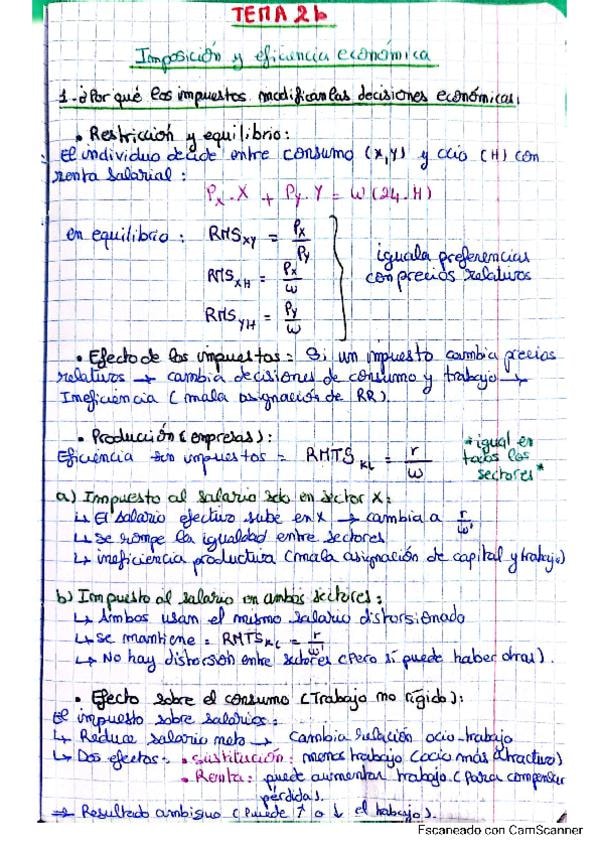 TEMA 2b
Imposición y eficiencia económica
1.-¿Por qué los impuestos modifican las decisiones económicas?
• Restricción y equilibrio:
El individuo decide entre consumo (X,Y) y ocio (H) con
renta salarial:
Px·X + Py·Y = w(24-H)
en equilibrio: RMSxy = Px/Py
RMSxH = Px/w
RMSyH = Py/w
iguala preferencias
con precios relativos
• Efecto de los impuestos = Si un impuesto cambia precios
relativos → cambia decisiones de consumo y trabajo →
Ineficiencia (mala asignación de RR).
• Producción (empresas):
Eficiencia sin impuestos = RMTS KL = r/w
*igual en
todos los
sectores*
a) Impuesto al salario solo en sector X:
↳ El salario efectivo sube en X → cambia a r/w'
↳ Se rompe la igualdad entre sectores
↳ ineficiencia productiva (mala asignación de capital y trabajo)
b) Impuesto al salario en ambos sectores:
↳ Ambos usan el mismo salario distorsionado
↳ Se mantiene = RMTS KL = r/w'
↳ No hay distorsión entre sectores (Pero sí puede haber otras).
• Efecto sobre el consumo (Trabajo no rígido):
El impuesto sobre salarios:
↳ Reduce salario neto → Cambia relación ocio-trabajo
↳ Dos efectos: • sustitución: menos trabajo (ocio más atractivo)
• Renta: puede aumentar trabajo (para compensar
pérdida).
⇒ Resultado ambiguo (puede ↑ o ↓ el trabajo).
Escaneado con CamScanner